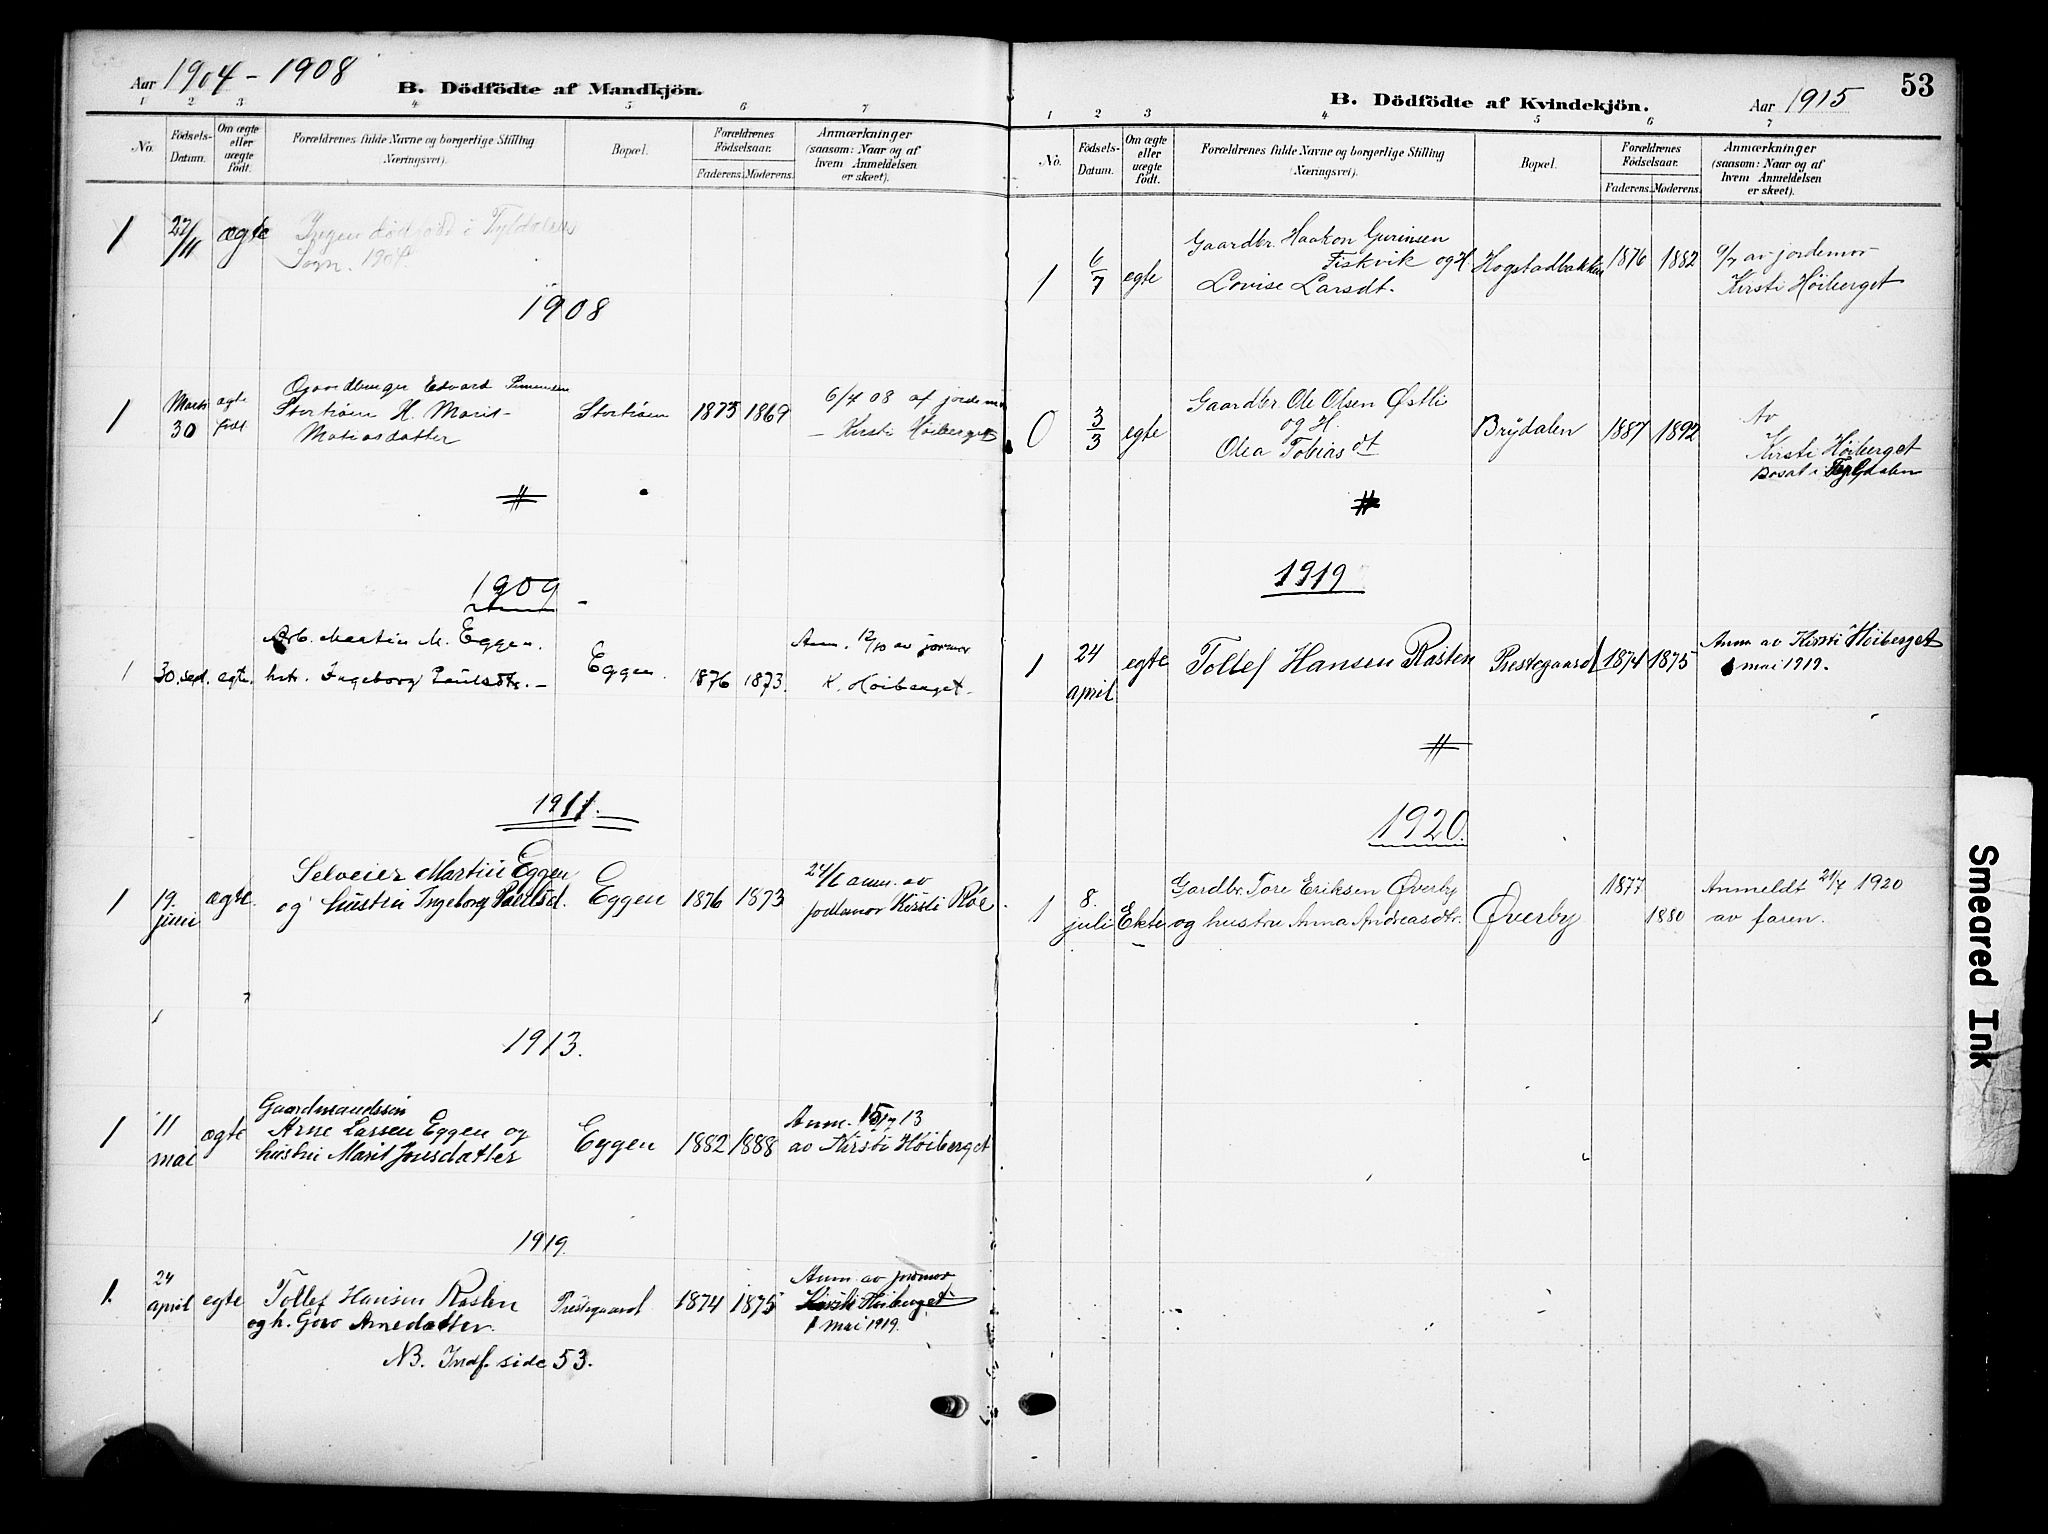 Aar 1904 - 1908
B. Dödfödte af Mandkjön.
1 2 3 4 5 6 7
No.
Födsels-Datum.
Om ægte eller uægte födt.
Forældrenes fulde Navne og borgerlige Stilling (Næringsvei).
Bopæl.
Forældrenes Födselsaar.
Faderens. Moderens.
Anmærkninger (saasom: Naar og af hvem Anmeldelsen er skeet).
1 27/11 ægte Ingen dödfødt i Tyldalen
Sogn. 1904
1908
1 Marts 30 ægte født
Gaardbruger Edvard Simensen
Storhøien H. Marit
Matiasdatter
1873 1869
6/4 08 af jordemor
- Kirsti Høiberget
1909
1 30. sept. egte.
Arb. Martin M. Eggen.
hstr. Ingeborg Paulsdtr. -
Eggen. 1876 1873.
Anm. 12/10 av jormor
K. Høiberget.
1911.
1 19. juni ægte.
Selveier Martin Eggen
og hustru Ingeborg Paulsd.
Eggen 1876 1873
24/6 anm. av
jordemor Kirsti Röe
1913.
1 11 mai ægte
Gaardmandssön
Arne Larsen Eggen og
hustru Marit Jonsdatter
Eggen 1882 1888
Anm. 13
av Kirsti Høiberget
1919.
1. 24 april egte
Tollef Hansen Rasten
og h. Goro Arnedatter.
Prestegaard 1874 1875
Anm. av jormor
Kirsti Høiberget
1 mai 1919.
NB. Indf. side 53.
53
B. Dödfödte af Kvindekjön.
Aar 1915
1 2 3 4 5 6 7
No.
Födsels-Datum.
Om ægte eller uægte födt.
Forældrenes fulde Navne og borgerlige Stilling (Næringsvei).
Bopæl.
Forældrenes Födselsaar.
Faderens. Moderens.
Anmærkninger (saasom: Naar og af hvem Anmeldelsen er skeet).
1 6/7 egte
Gaardbr. Haakon Gurinsen
Fiskvik og H.
Lovise Larsdt.
Hogstadbakken 1876 1882
6/7 av jordemor
Kirsti Høiberget
0 3/3 egte
Gaardbr Ole Olsen Østli
og H.
Olea Tobiasdt
Brydalen 1887 1892
Av
Kirsti Høiberget
Bosat i Tyldalen
1919
1 24 april egte
Tollef Hansen Rasten
Prestegaard 1874 1875
Anm av Kirsti Høiberget
1 mai 1919.
1920.
1 8. juli Ekte
Gardbr. Tore Eriksen Øverby
og hustru Anna Andreasdtr.
Øverby
1877 1880
Anmeldt 21/7 1920
av faren.
Smeared Ink